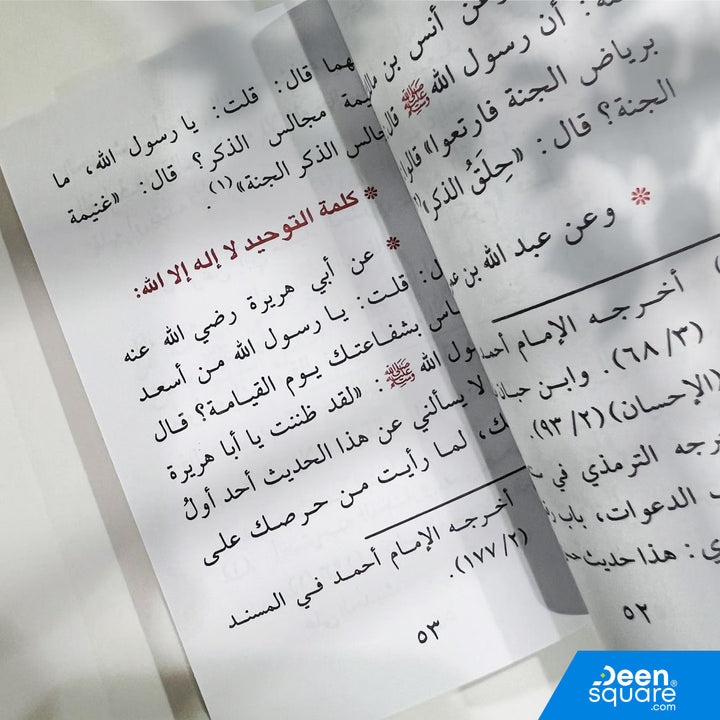 وعن أنس بن
أن رسول الله ﷺ قال
برياض الجنة فارتعوا» قالوا
الجنة؟ قال: «حِلَقُ الذكر»
* وعن عبد الله بن
أخرجه الإمام أحمد
(٣/ ٦٨). وابن
(الإحسان) (٢/ ٩٣).
الترمذي في
الدعوات، باب
: هذا حديث
٥٢
قال: قلت: يا رسول الله، ما
مجالس الذكر؟ قال: «غنيمة
مجالس الذكر الجنة»(١).
* كلمة التوحيد لا إله إلا الله:
* عن أبي هريرة رضي الله عنه
قلت: يا رسول الله من أسعد
بشفاعتك يوم القيامة؟ قال
رسول الله ﷺ: «لقد ظننت يا أبا هريرة
لا يسألني عن هذا الحديث أحد أولُ
لما رأيت من حرصك على
أخرجه الإمام أحمد في المسند
(٢/ ١٧٧).
٥٣
Deen
square®
.com